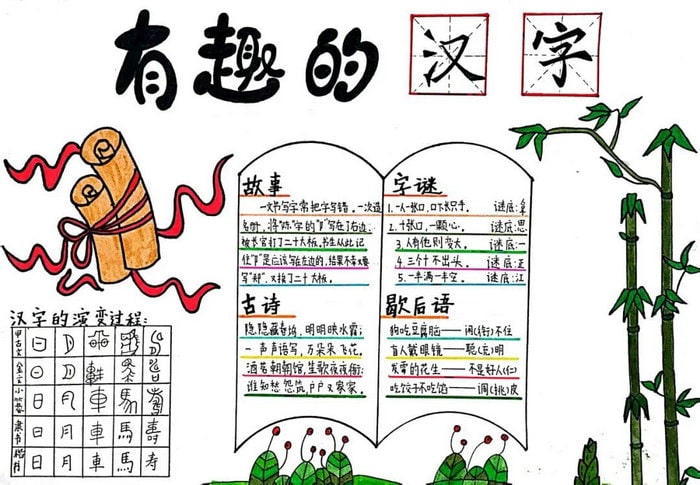 有趣的汉字
故事
一次书写字常把字写错。一次造
名册,将"陈"字的"阝"写在了右边,
被长官打了二十大板。书生从此记
住"阝"是应该写在左边的,结果不幸又要
写"郑",又挨了二十大板。
古诗
隐隐藏春坞,明明映水霞;
一声声语写,万朵朵飞花。
酒苦朝朝馆,笙歌夜夜衙;
谁知愁怨筑,户户又家家。
字谜
1.一人一张口,口下长只手。 谜底:拿
2.十张口,一颗心。 谜底:思
3.人有他则变大。 谜底:一
4.三个才不出头。 谜底:
5.一半满一半空。 谜底:江
歇后语
狗吃豆腐脑——闲(衔)不住
盲人戴眼镜——聪(充)明
发霉的花生——不是好人(仁)
吃饺子不吃馅——调(挑)皮
汉字的演变过程:
甲古文
金文
小篆 日 月 車 馬
隶书 日 月 車 馬 壽
日 月 车 馬 寿